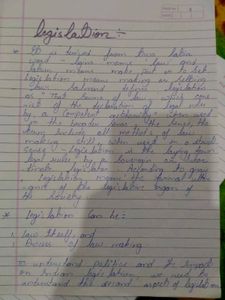 legislation :-
* It is derived from two latin
word - legis means 'law' and
latum means make put or to set
legislation means making or setting
law. Salmond defines legislation
as "that source of law which cons-
ist of the declaration of legal rules
by a competent authority". When used
in the broader sense, the
term include all methods of law
making still when used in a strict
sense - legislation is the laying down
legal rules by a sovereign or subor-
dinate legislator. According to gray
legislation means the formal utter-
ances of the legislative organ of
the society.
* legislation can be :
1. law itself; and
2. Process of law making
To understand politics and the
in Indian legislature, we need to
understand the second aspect of legislation